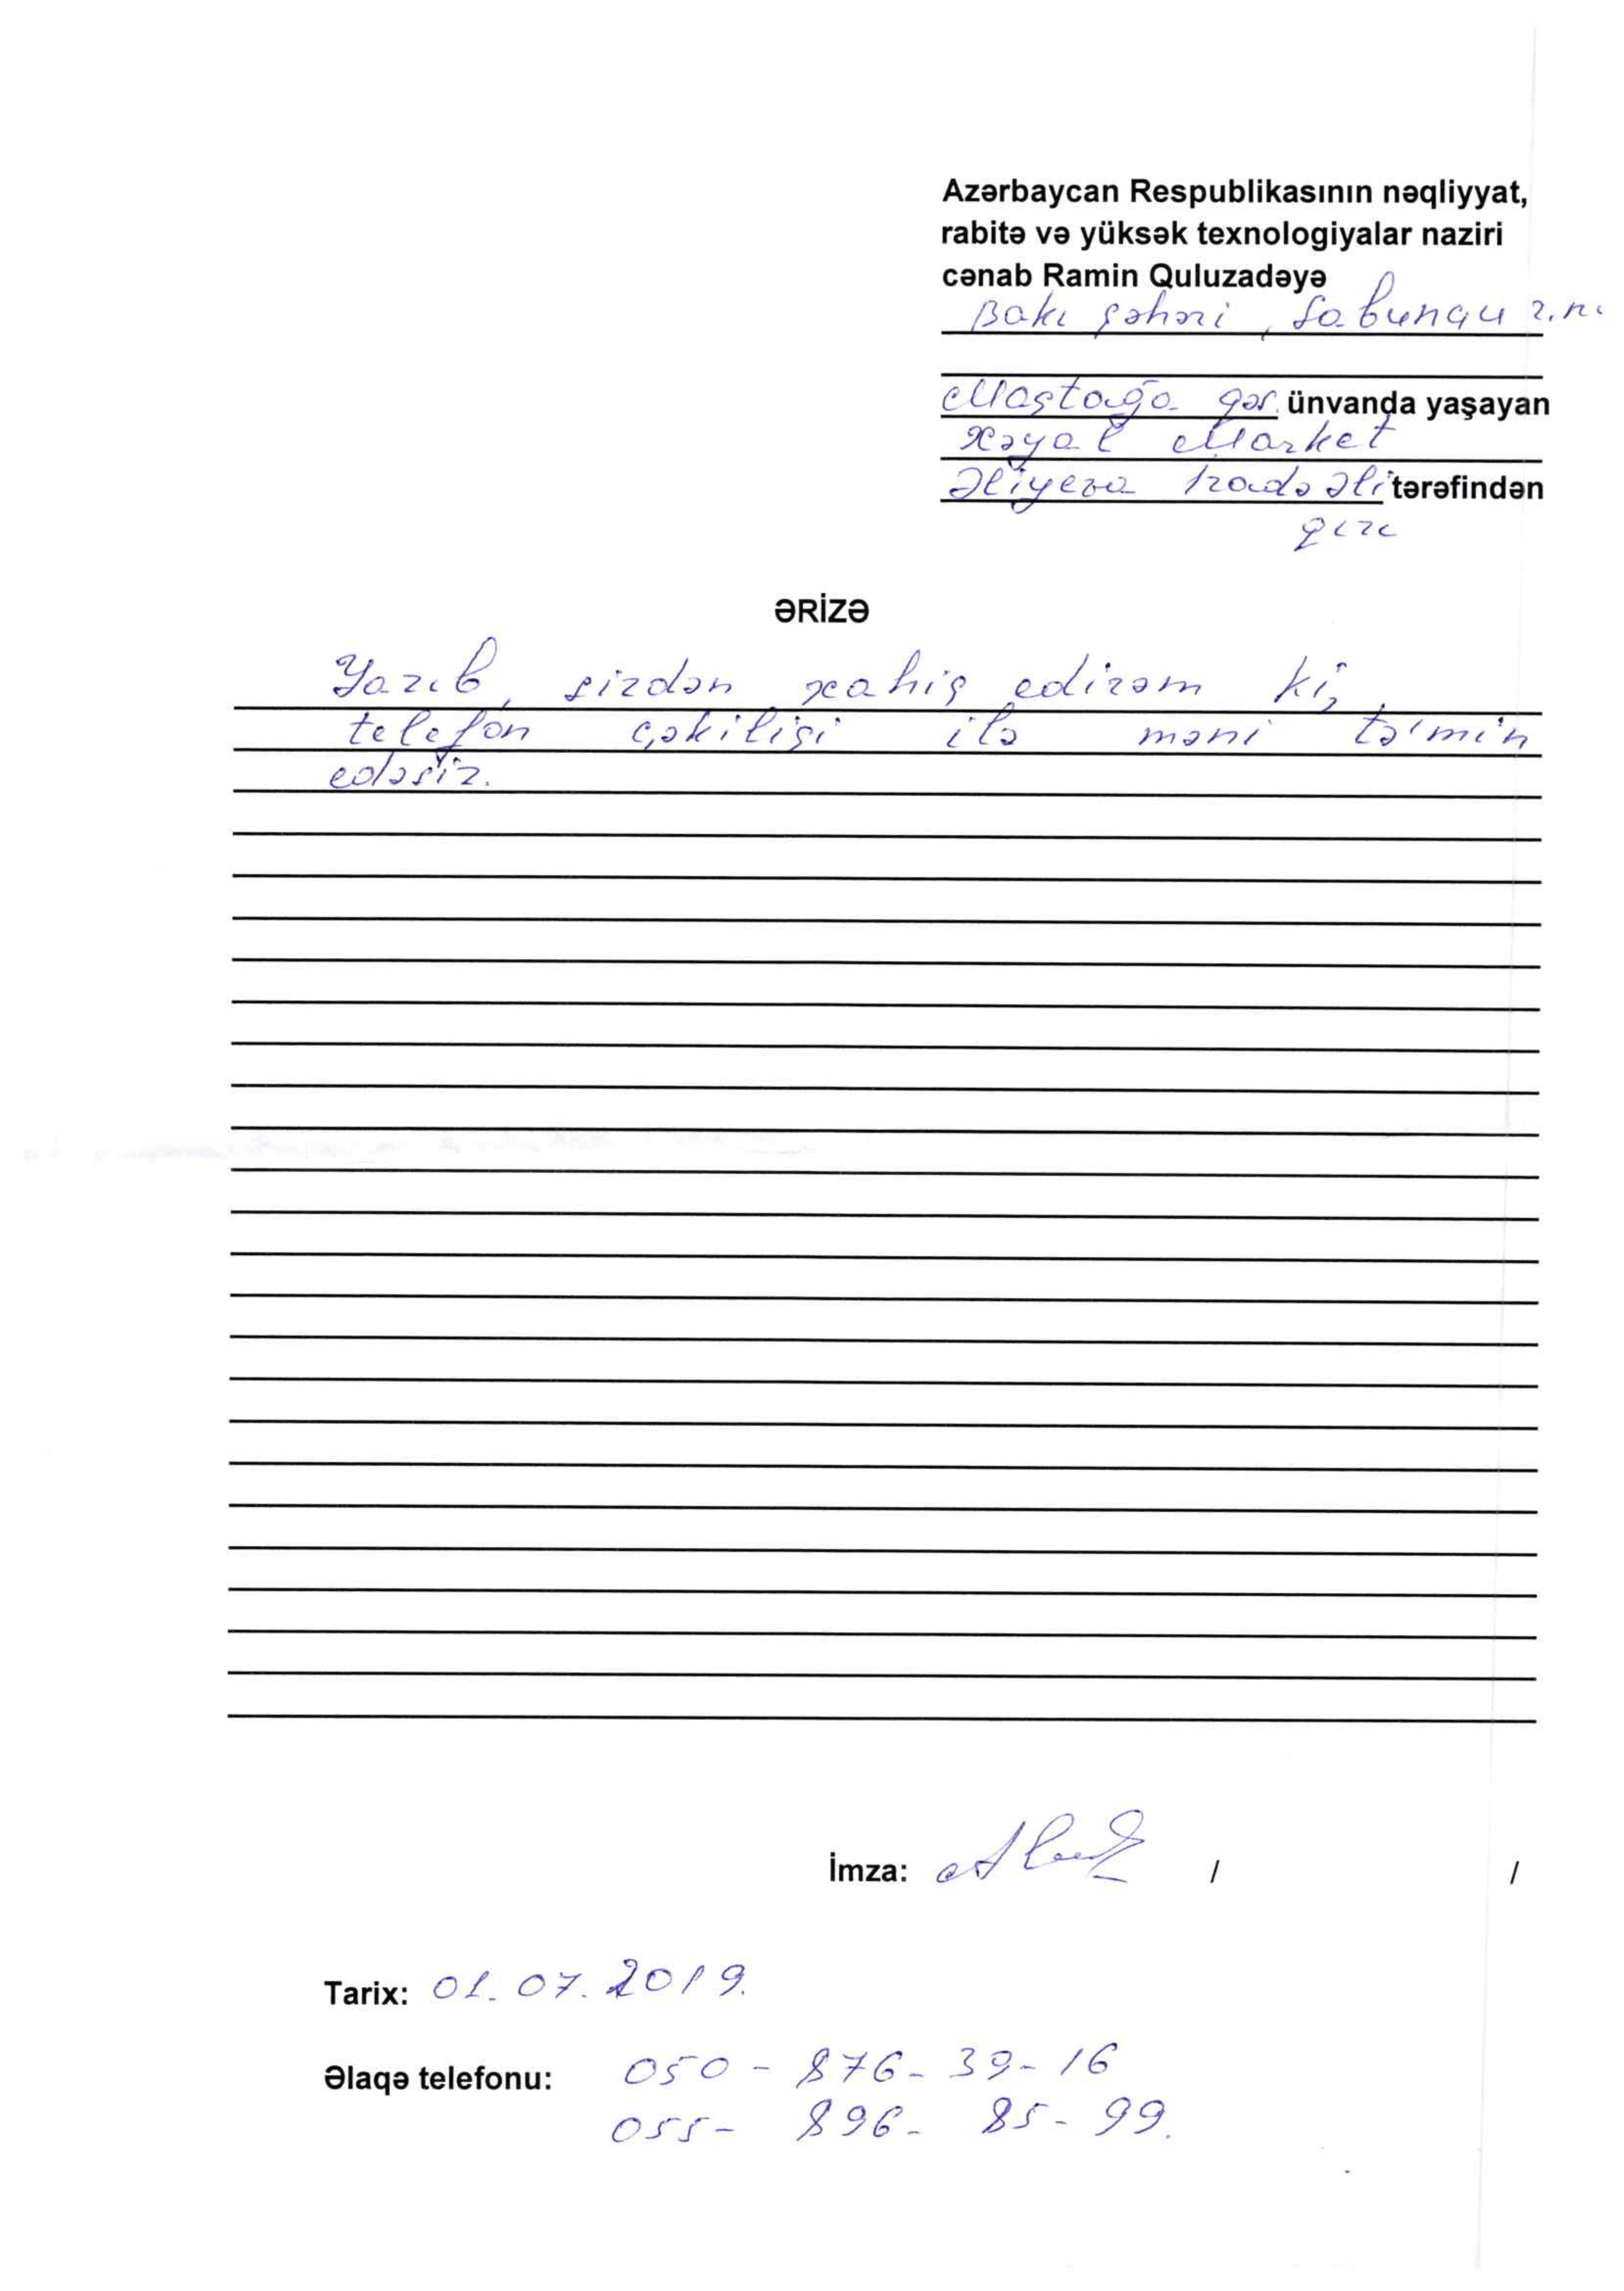 Azərbaycan Respublikasının nəqliyyat,
rabitə və yüksək texnologiyalar naziri
cənab Ramin Quluzadəyə
Bakı şəhəri, Sabunçu r.n.
Maştağa qəs. ünvanda yaşayan
Xəyal Market
Əliyeva İradə Əli tərəfindən
qızı
ƏRİZƏ
Yazıb, sizdən xahiş edirəm ki,
telefon çəkilişi ilə məni tə'min
edəsiz.
İmza: / /
Tarix: 01.07.2019.
Əlaqə telefonu: 050-876-39-16
055-896-85-99.